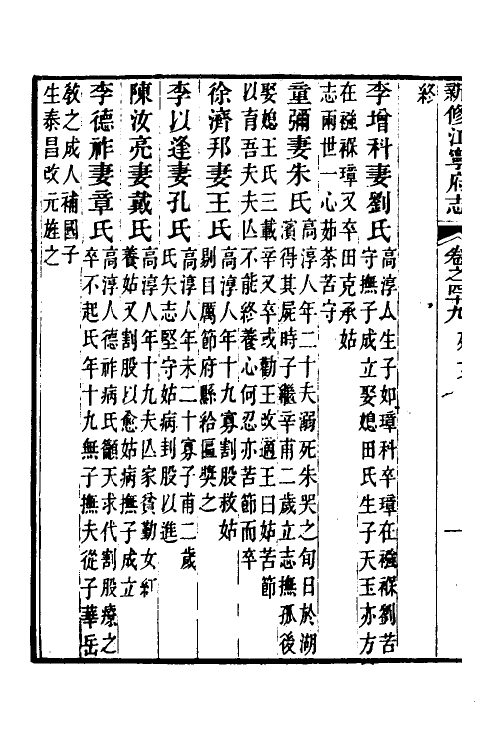 新修江寧府志
卷之四十九
終
李增科妻劉氏
高淳人生子如璋科卒璋在襁褓劉苦
守撫子成立娶媳田氏生子天玉亦方
在襁褓璋又卒田克承姑
志兩世一心茹荼苦守
童彌妻朱氏
高淳人年二十夫溺死朱哭之旬日於湖
濱得其屍時子繼辛甫二歲立志撫孤後
娶媳王氏三載辛又卒或勸王改適王曰姑苦節
以育吾夫夫亡不能終養心何忍亦苦節而卒
徐濟邦妻王氏
高淳人年十九寡割股救姑
剔目厲節府縣給匾奬之
李以逢妻孔氏
高淳人年未二十寡子甫二歲
氏矢志堅守姑病刲股以進
陳汝亮妻戴氏
高淳人年十九夫亡家貧勤女紅
養姑又割股以愈姑病撫子成立
李德祚妻章氏
高淳人德祚病氏籲天求代割股療之
卒不起氏年十九無子撫夫從子華岳
敎之成人補國子
生泰昌改元旌之